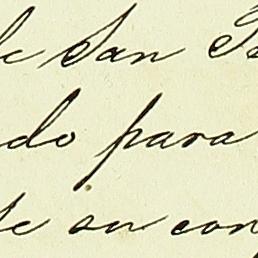 de San
do para
te su con